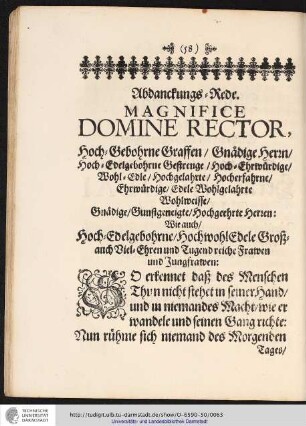 (58)
Abdanckungs-Rede.
MAGNIFICE
DOMINE RECTOR,
Hoch-Gebohrne Graffen / Gnädige Herrn /
Hoch-Edelgebohrne Gestrenge / Hoch-Ehrwürdige /
Wohl-Edle / Hochgelahrte / Hocherfahrne /
Ehrwürdige / Edele Wohlgelahrte
Wohlweisse /
Gnädige / Gunstgeneigte / Hochgeehrte Herren:
Wie auch /
Hoch-Edelgebohrne / HochwohlEdele Groß-
auch Viel-Ehren und Tugend reiche Frawen
und Jungfrawen:
SO erkennet daß des Menschen
Thun nicht stehet in seiner Hand /
und in niemandes Macht / wie er
wandele und seinen Gang richte:
Nun rühme sich niemand des Morgenden
Tages /
TECHNISCHE
UNIVERSITÄT
DARMSTADT
http://tudigit.ulb.tu-darmstadt.de/show/G-6590-50/0063
Universitäts- und Landesbibliothek Darmstadt